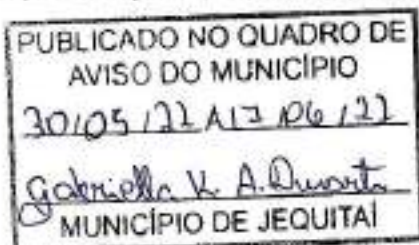 PUBLICADO NO QUADRO DE
AVISO DO MUNICÍPIO
30/05/22 A 13/06/22
Gabriella K. A. Duarte
MUNICÍPIO DE JEQUITAÍ